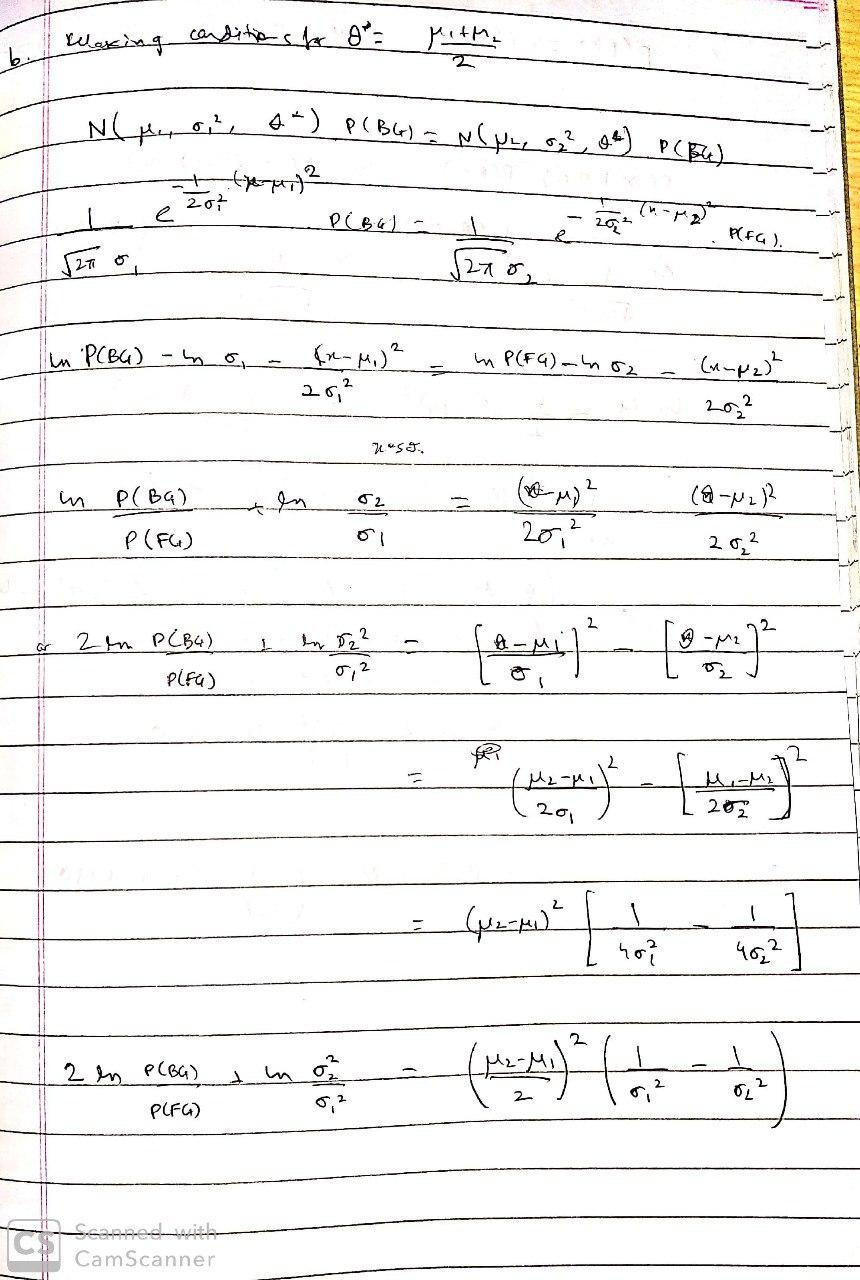 b. Relaxing conditions for θ* = (μ₁+μ₂)/2
N(μ₁, σ₁², θ*) P(BG) = N(μ₂, σ₂², θ*) P(FG)
1/(√2π σ₁) e^(-1/(2σ₁²) (x-μ₁)²) P(BG) = 1/(√2π σ₂) e^(-1/(2σ₂²) (x-μ₂)²) . P(FG).
ln P(BG) - ln σ₁ - (x-μ₁)²/2σ₁² = ln P(FG) - ln σ₂ - (x-μ₂)²/2σ₂²
ln P(BG)/P(FG) + ln σ₂/σ₁ = (θ-μ₁)²/2σ₁² (θ-μ₂)²/2σ₂²
or 2 ln P(BG)/P(FG) + ln σ₂²/σ₁² = [(θ-μ₁)/σ₁]² - [(θ-μ₂)/σ₂]²
= ((μ₂-μ₁)/2σ₁)² - [(μ₁-μ₂)/2σ₂]²
= (μ₂-μ₁)² [1/4σ₁² - 1/4σ₂²]
2 ln P(BG)/P(FG) + ln σ₂²/σ₁² = ((μ₂-μ₁)/2)² (1/σ₁² - 1/σ₂²)
CS Scanned with
CamScanner